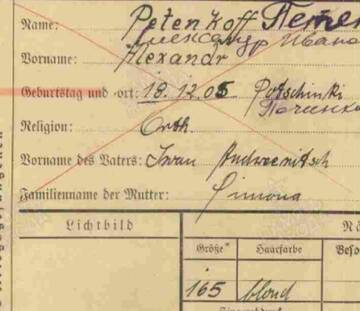 Name: Petenkoff Петен
Александр Ивано
Vorname: Alexandr
Geburtstag und -ort: 18.12.05 Potschinki
Починк
Religion: Orth.
Vorname des Vaters: Iwan Andreewitsch
Familienname der Mutter: Simona
Lichtbild
Größe Haarfarbe Beso
165 blond